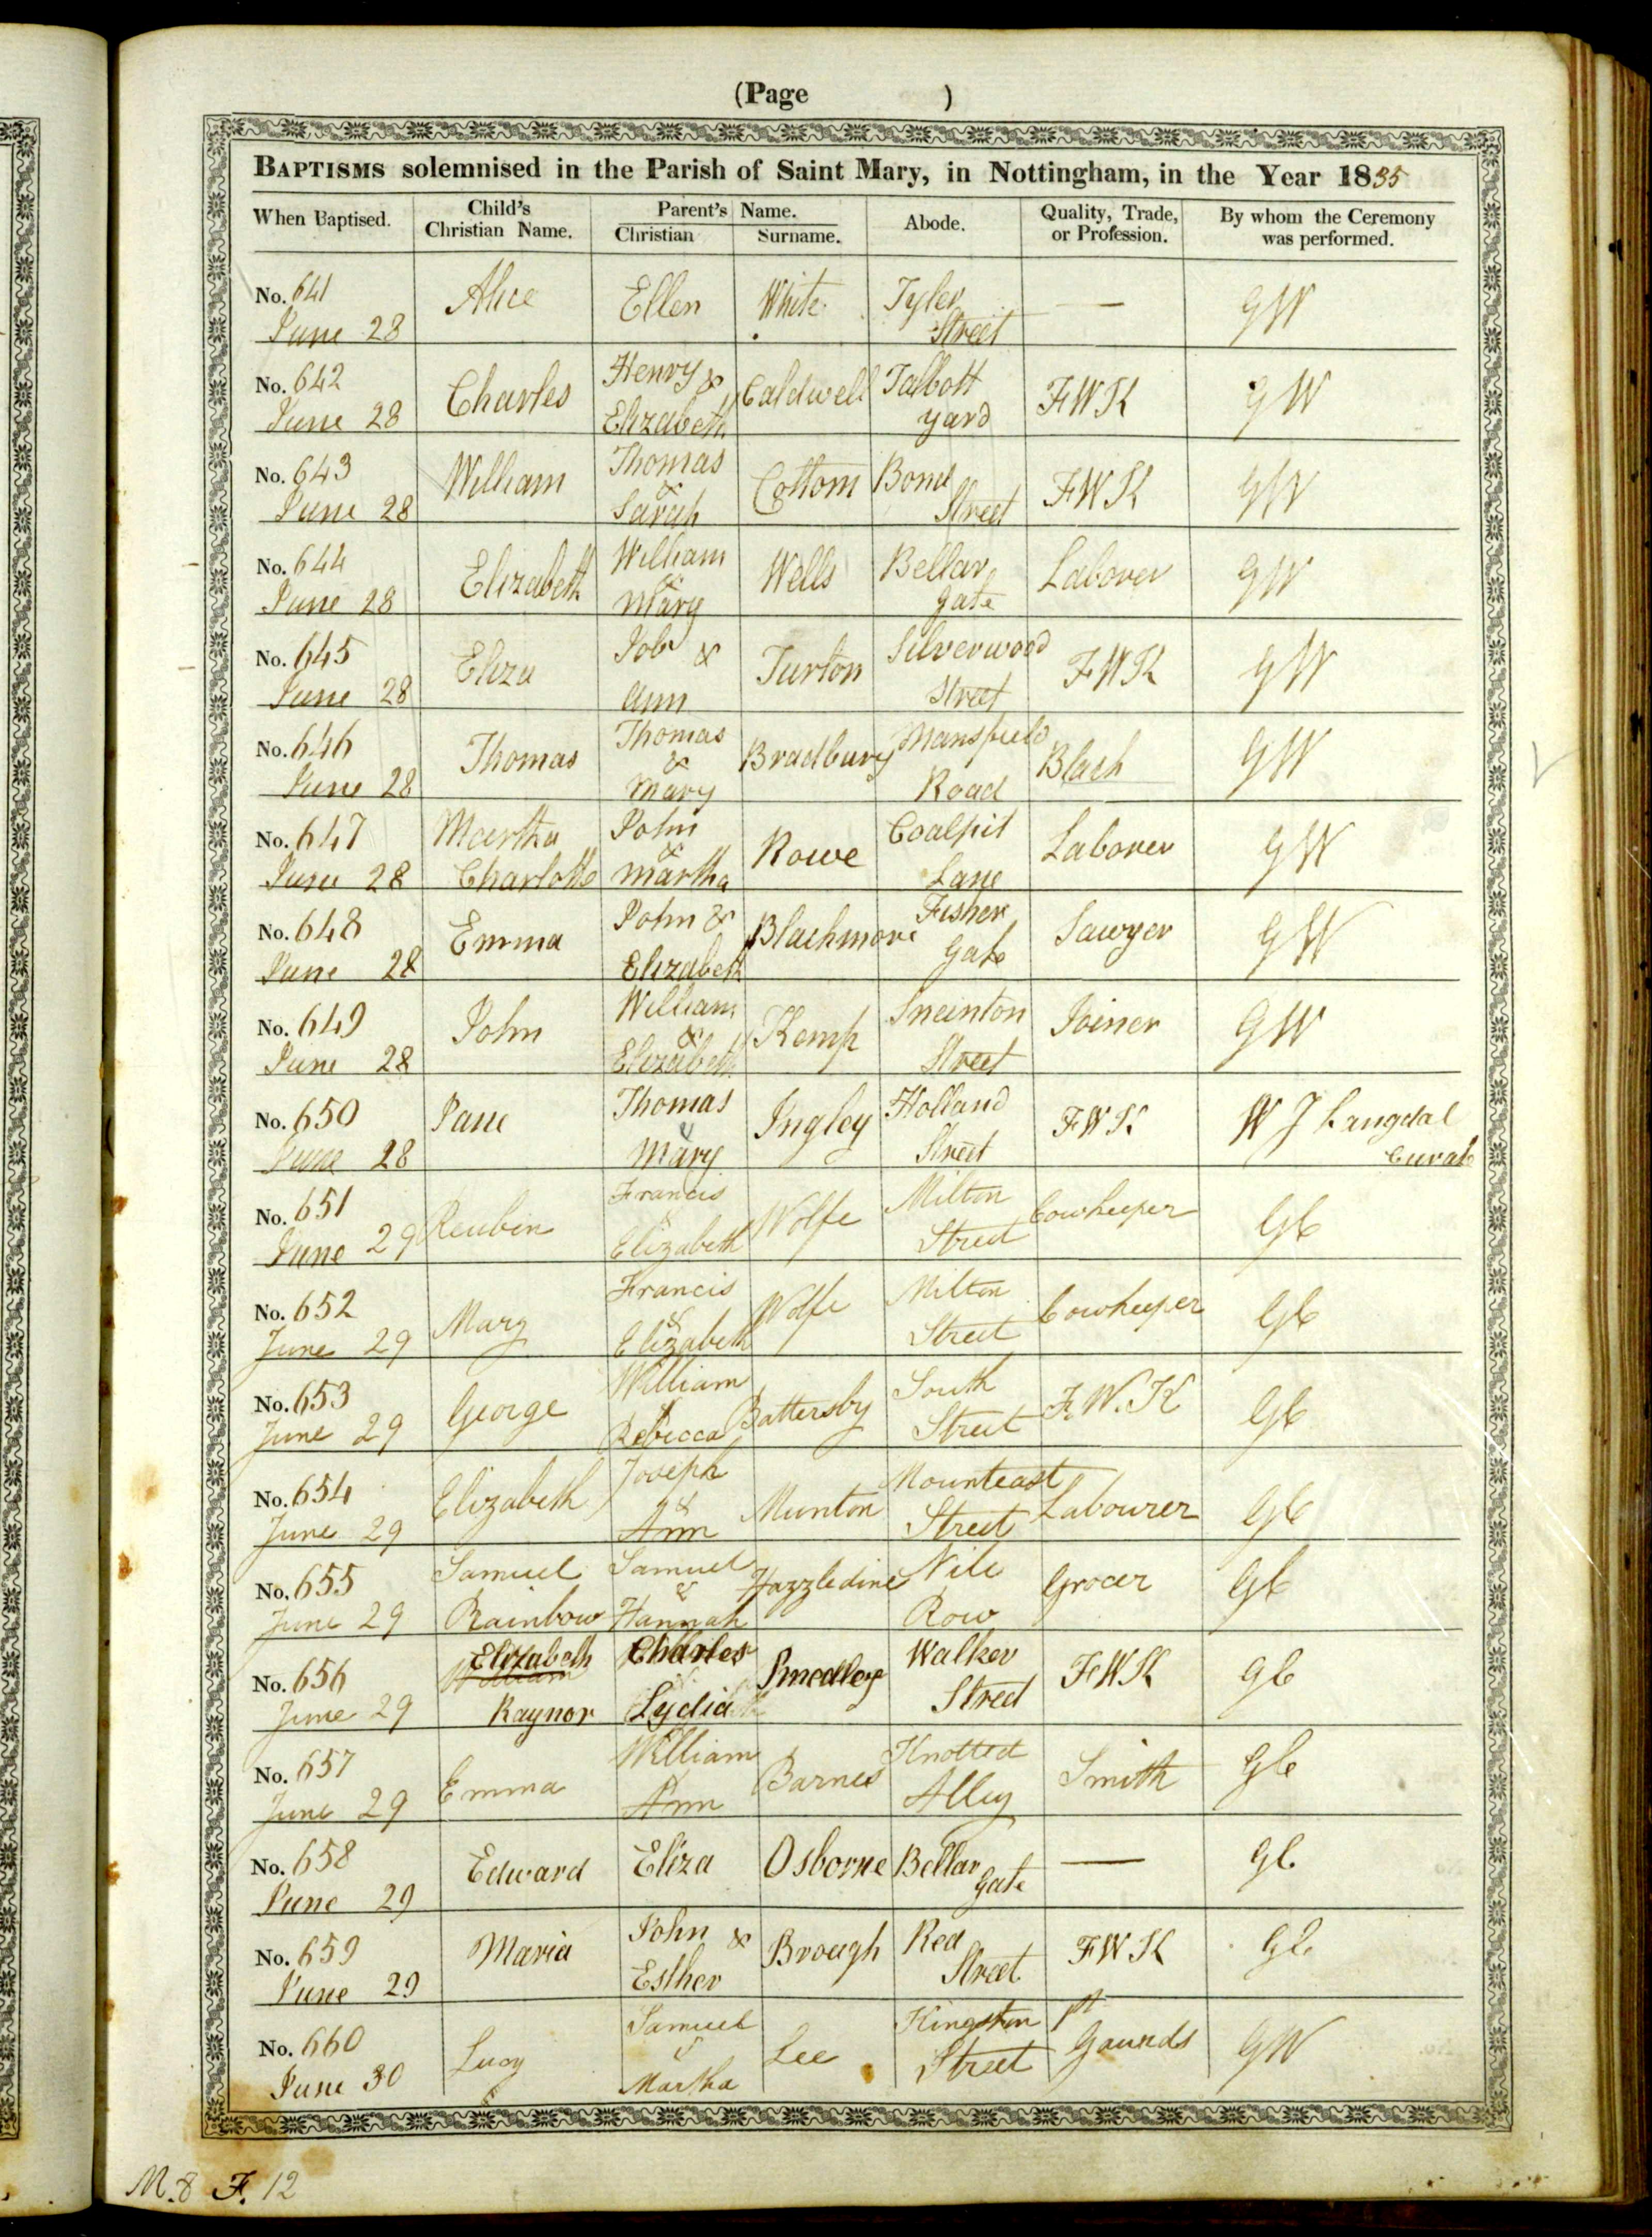 (Page )
BAPTISMS solemnised in the Parish of Saint Mary, in Nottingham, in the Year 1835
When Baptised. Child's Christian Name. Parent's Name. Christian Surname. Abode. Quality, Trade, or Profession. By whom the Ceremony was performed.
No. 641 June 28 Alice Ellen White Tyler Street — GW
No. 642 June 28 Charles Henry & Elizabeth Caldwell Talbott yard FWK GW
No. 643 June 28 William Thomas & Sarah Cottom Bond Street FWK GW
No. 644 June 28 Elizabeth William & Mary Wells Bellar gate Laborer GW
No. 645 June 28 Eliza Job & Ann Turton Silverwood Street FWK GW
No. 646 June 28 Thomas Thomas & Mary Bradbury Mansfield Road Blach GW
No. 647 June 28 Martha Charlotte John & Martha Rowe Coalpit Lane Laborer GW
No. 648 June 28 Emma John & Elizabeth Blackmore Fisher Gate Sawyer GW
No. 649 June 28 John William & Elizabeth Kemp Sneinton Street Joiner GW
No. 650 June 28 Jane Thomas & Mary Ingley Holland Street FWK W J Langdal Curate
No. 651 June 29 Reubin Francis & Elizabeth Wolfe Milton Street Cowkeeper GC
No. 652 June 29 Mary Francis & Elizabeth Wolfe Milton Street Cowkeeper GC
No. 653 June 29 George William & Rebecca Battersby South Street F.W.K GC
No. 654 June 29 Elizabeth Joseph & Ann Munton Mounteast Street Labourer GC
No. 655 June 29 Samuel Rainbow Samuel & Hannah Hazzledine Nile Row Grocer GC
No. 656 June 29 Elizabeth William Raynor Charles Lydia Smedley Walker Street FWK GC
No. 657 June 29 Emma William & Ann Barnes Knotted Alley Smith GC
No. 658 June 29 Edward Eliza Osborne Bellar gate — GC
No. 659 June 29 Maria John & Esther Brough Red Street FWK GC
No. 660 June 30 Lucy Samuel & Martha Lee Kingston Street Gaunds GW
M. 8 F. 12